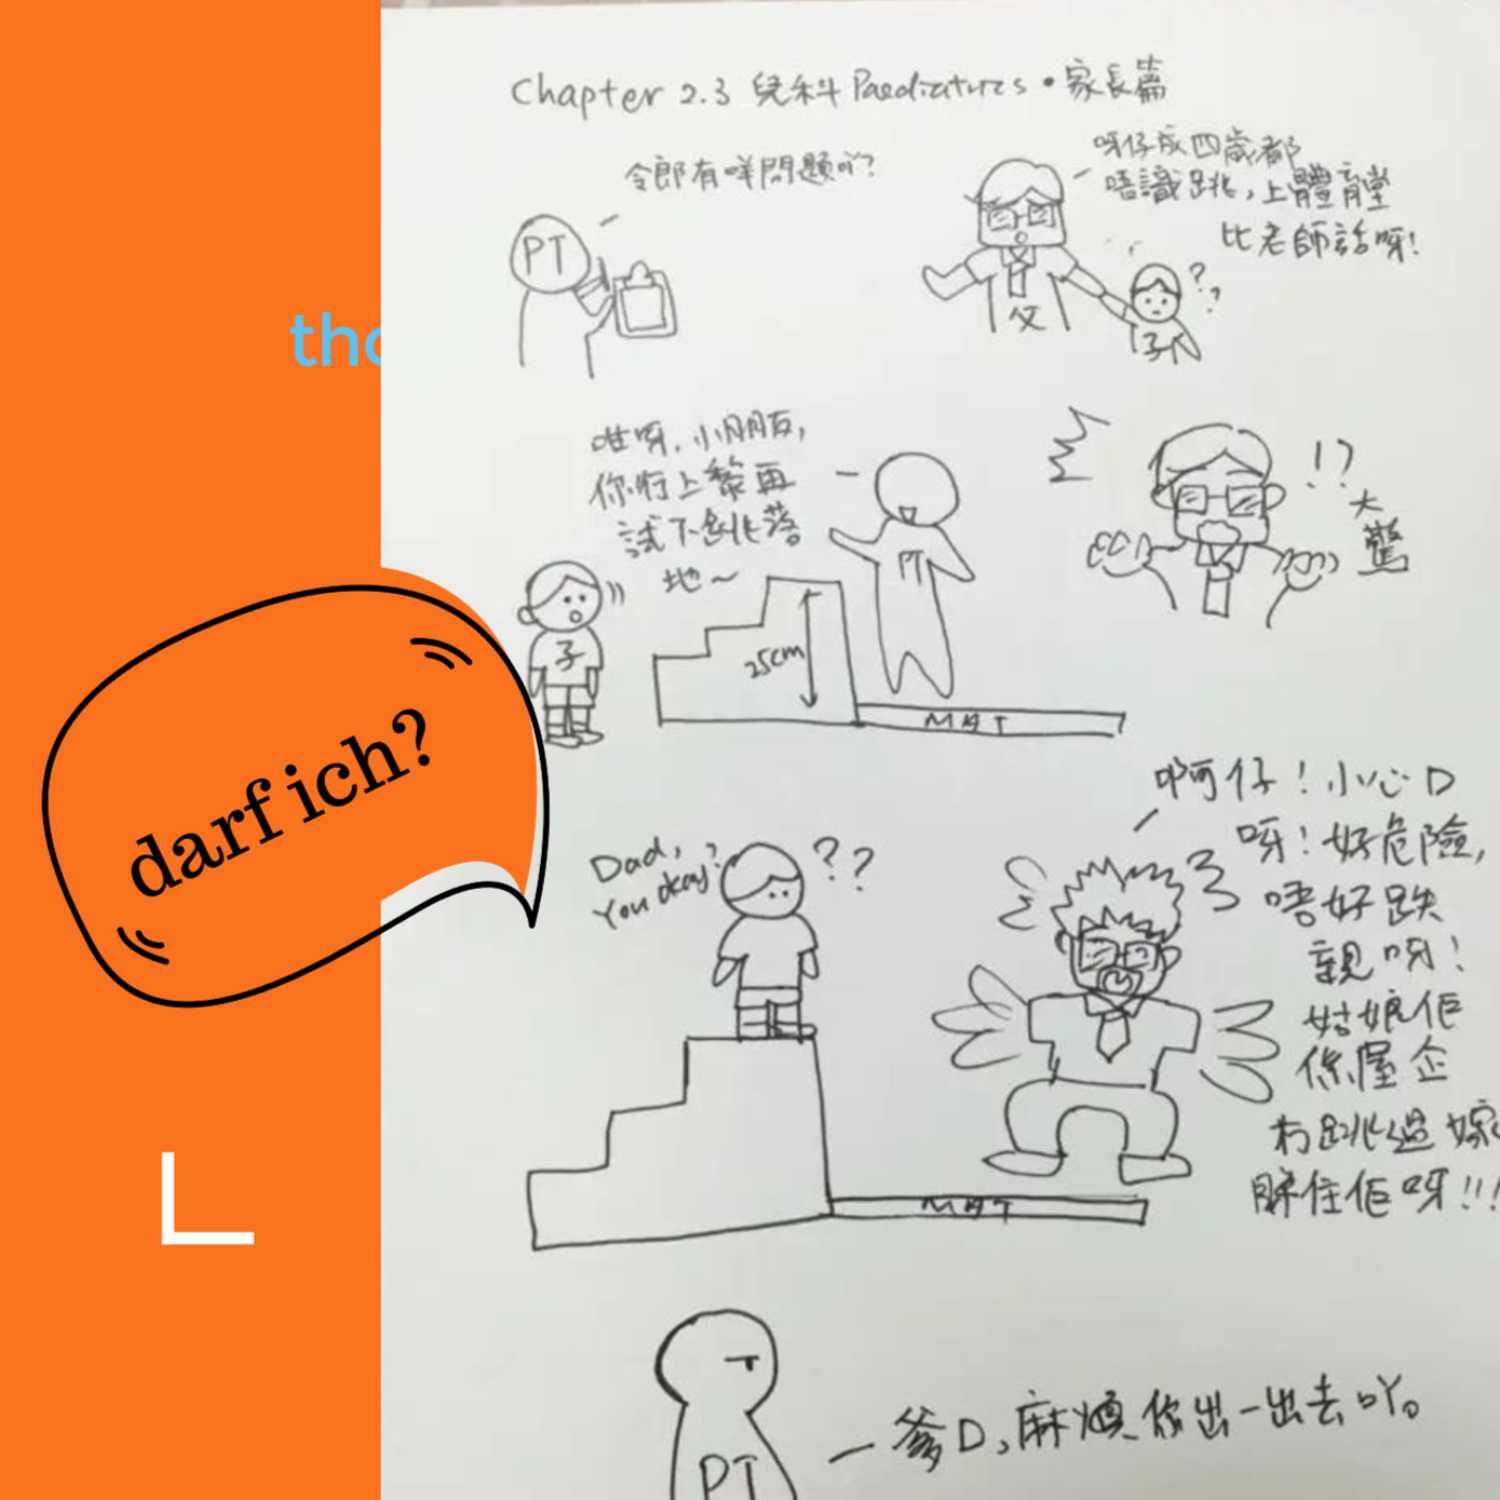 Chapter 2.3 兒科 Paediatrics • 家長篇
令郎有咩問題吖?
PT
呀仔成四歲都
唔識跳,上體育堂
比老師話呀!
父
子
??
tho
咁呀,小朋友,
你行上黎再
試下跳落
地~
PT
子
25cm
MAT
!?
大
驚
darf ich?
Dad,
You okay?
??
啊仔!小心D
呀!好危險,
唔好跌
親呀!
姑娘佢
係屋企
冇跳過㗎
睇住佢呀!!!
MAT
L
爹D,麻煩你出一出去吖。
PT